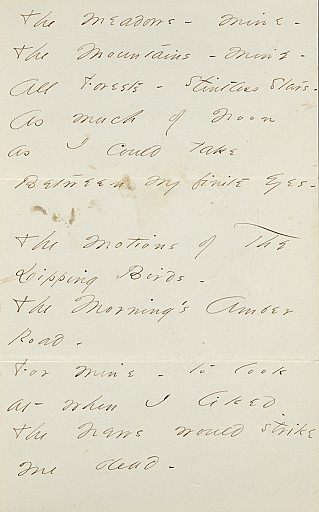 The Meadows - mine -
The Mountains - mine -
All Forests - Stintless Stars -
As much of noon
as I could take
Between my finite eyes -
The Motions of The
Dipping Birds -
The Morning's Amber
Road -
For mine - to look
at when I liked
The news would strike
me dead -